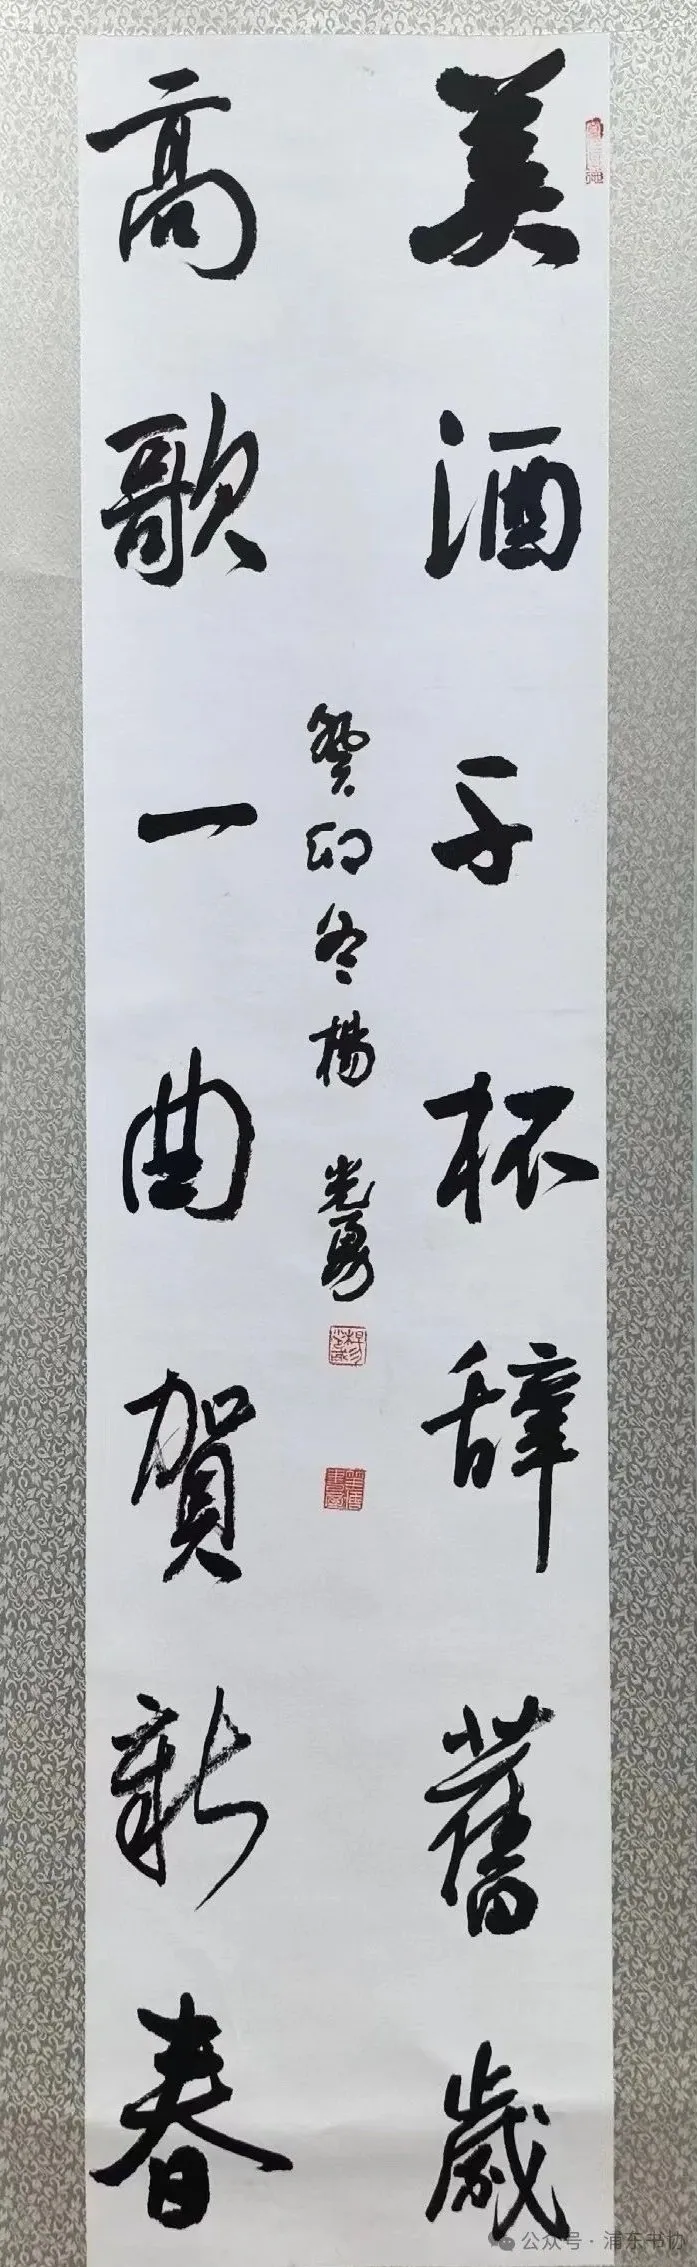 美酒千杯辞舊歲
高歌一曲賀新春
癸卯冬楊光勇
公众号·浦东书协